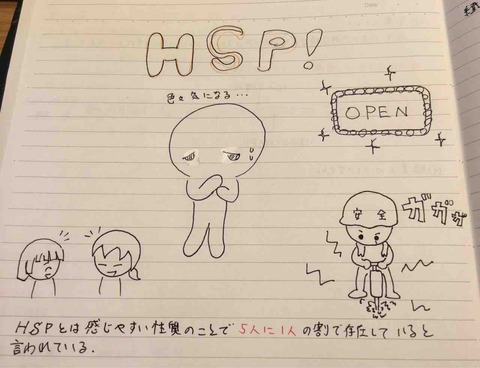 HSP!
色々気になる…
OPEN
安全
ガガガ
HSPとは感じやすい性質のことで5人に1人の割で存在していると
言われている.